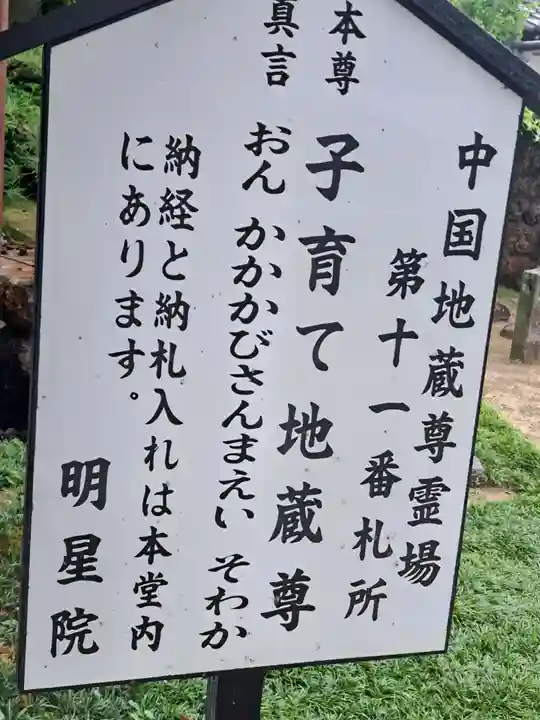 中国地蔵尊霊場
第十一番札所
本尊 子育て地蔵尊
真言 おん かかかびさんまえい そわか
納経と納札入れは本堂内
にあります。
明星院